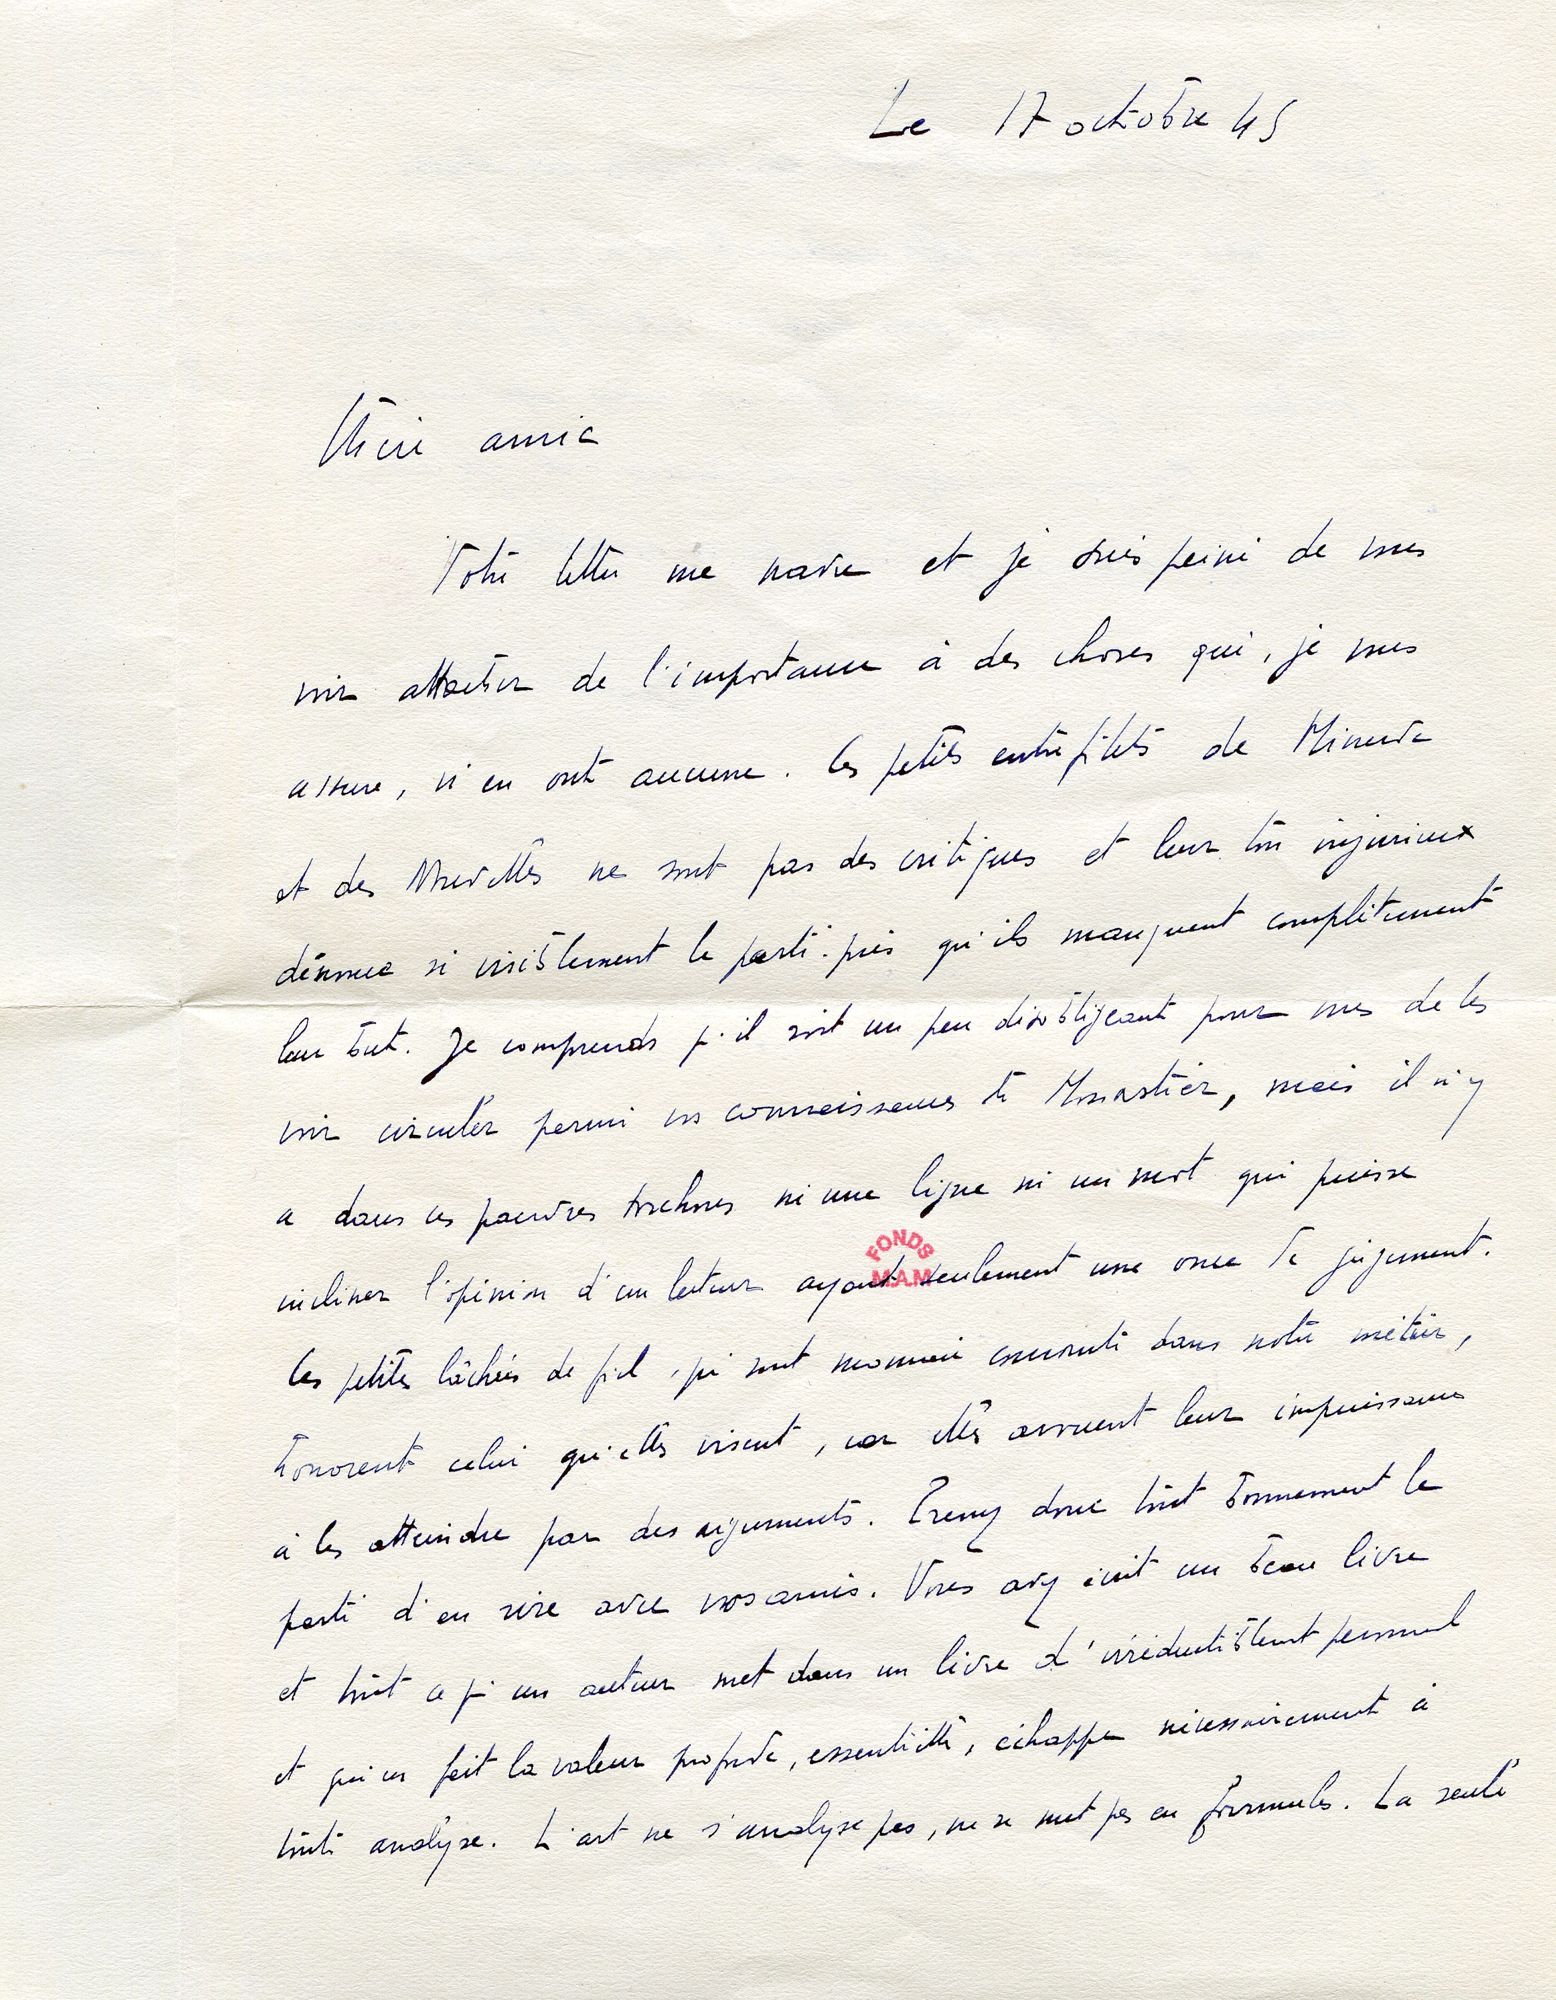 Le 17 octobre 45
Chère amie
Votre lettre me navre et je suis peiné de vous
voir attacher de l'importance à des choses qui, je vous
assure, n'en ont aucune. Les petits entrefilets de Minerve
et des Nouvelles ne sont pas des critiques et leur ton injurieux
dénonce si visiblement le parti-pris qu'ils manquent complètement
leur but. Je comprends qu'il soit un peu désobligeant pour vous de les
voir circuler parmi vos connaissances de Monastier, mais il n'y
a dans ces pauvres torchons ni une ligne ni un mot qui puisse
incliner l'opinion d'un lecteur ayant seulement une once de jugement.
FONDS
M.A.M
Ces petites lâchées de fiel, qui sont monnaie courante dans notre métier,
honorent celui qu'elles visent, car elles avouent leur impuissance
à les atteindre par des arguments. Prenez donc tout bonnement le
parti d'en rire avec vos amis. Vous avez écrit un beau livre
et tout ce qu'un auteur met dans un livre d'irréductiblement personnel
et qui en fait la valeur profonde, essentielle, échappe nécessairement à
toute analyse. L'art ne s'analyse pas, ne se met pas en formules. La seule